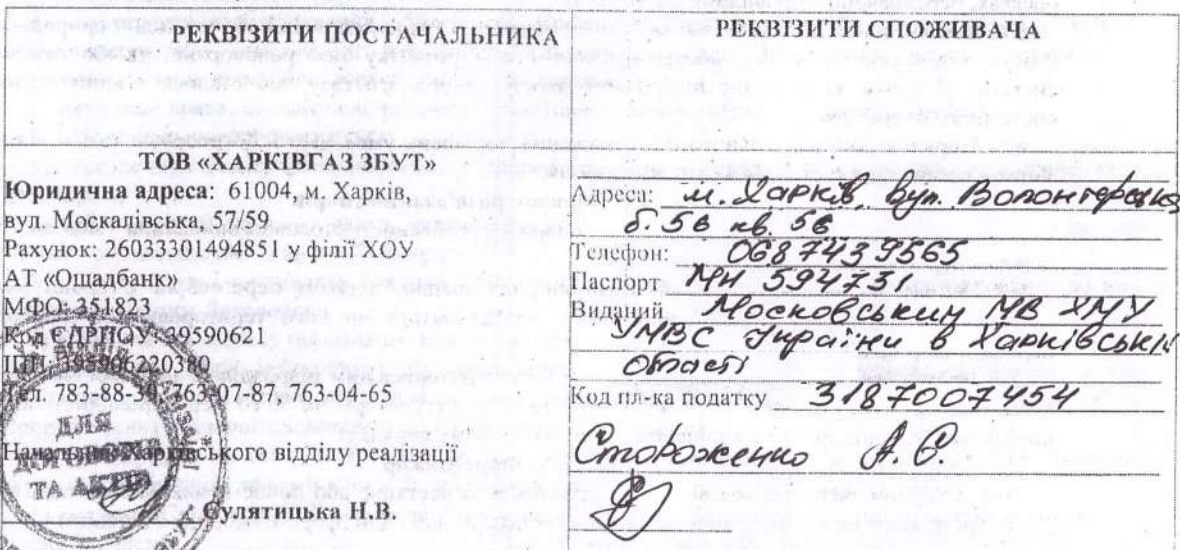 РЕКВІЗИТИ ПОСТАЧАЛЬНИКА
ТОВ «ХАРКІВГАЗ ЗБУТ»
Юридична адреса: 61004, м. Харків,
вул. Москалівська, 57/59
Рахунок: 26033301494851 у філії ХОУ
АТ «Ощадбанк»
МФО: 351823
Код ЄДРПОУ
Тел. 783-88-
763-04-65
Начальник Харківського відділу реалізації
ДЛЯ
ТА АКТІВ
Сулятицька Н.В.
РЕКВІЗИТИ СПОЖИВАЧА
Адреса: м. Харків, вул. Волонтерська
б. 56 кв. 56
Телефон: 0687439565
Паспорт МН 594731
Виданий Московським МВ ХМУ
УМВС України в Харківській
області
Код пл-ка податку 3187007454
Стороженко А. С.